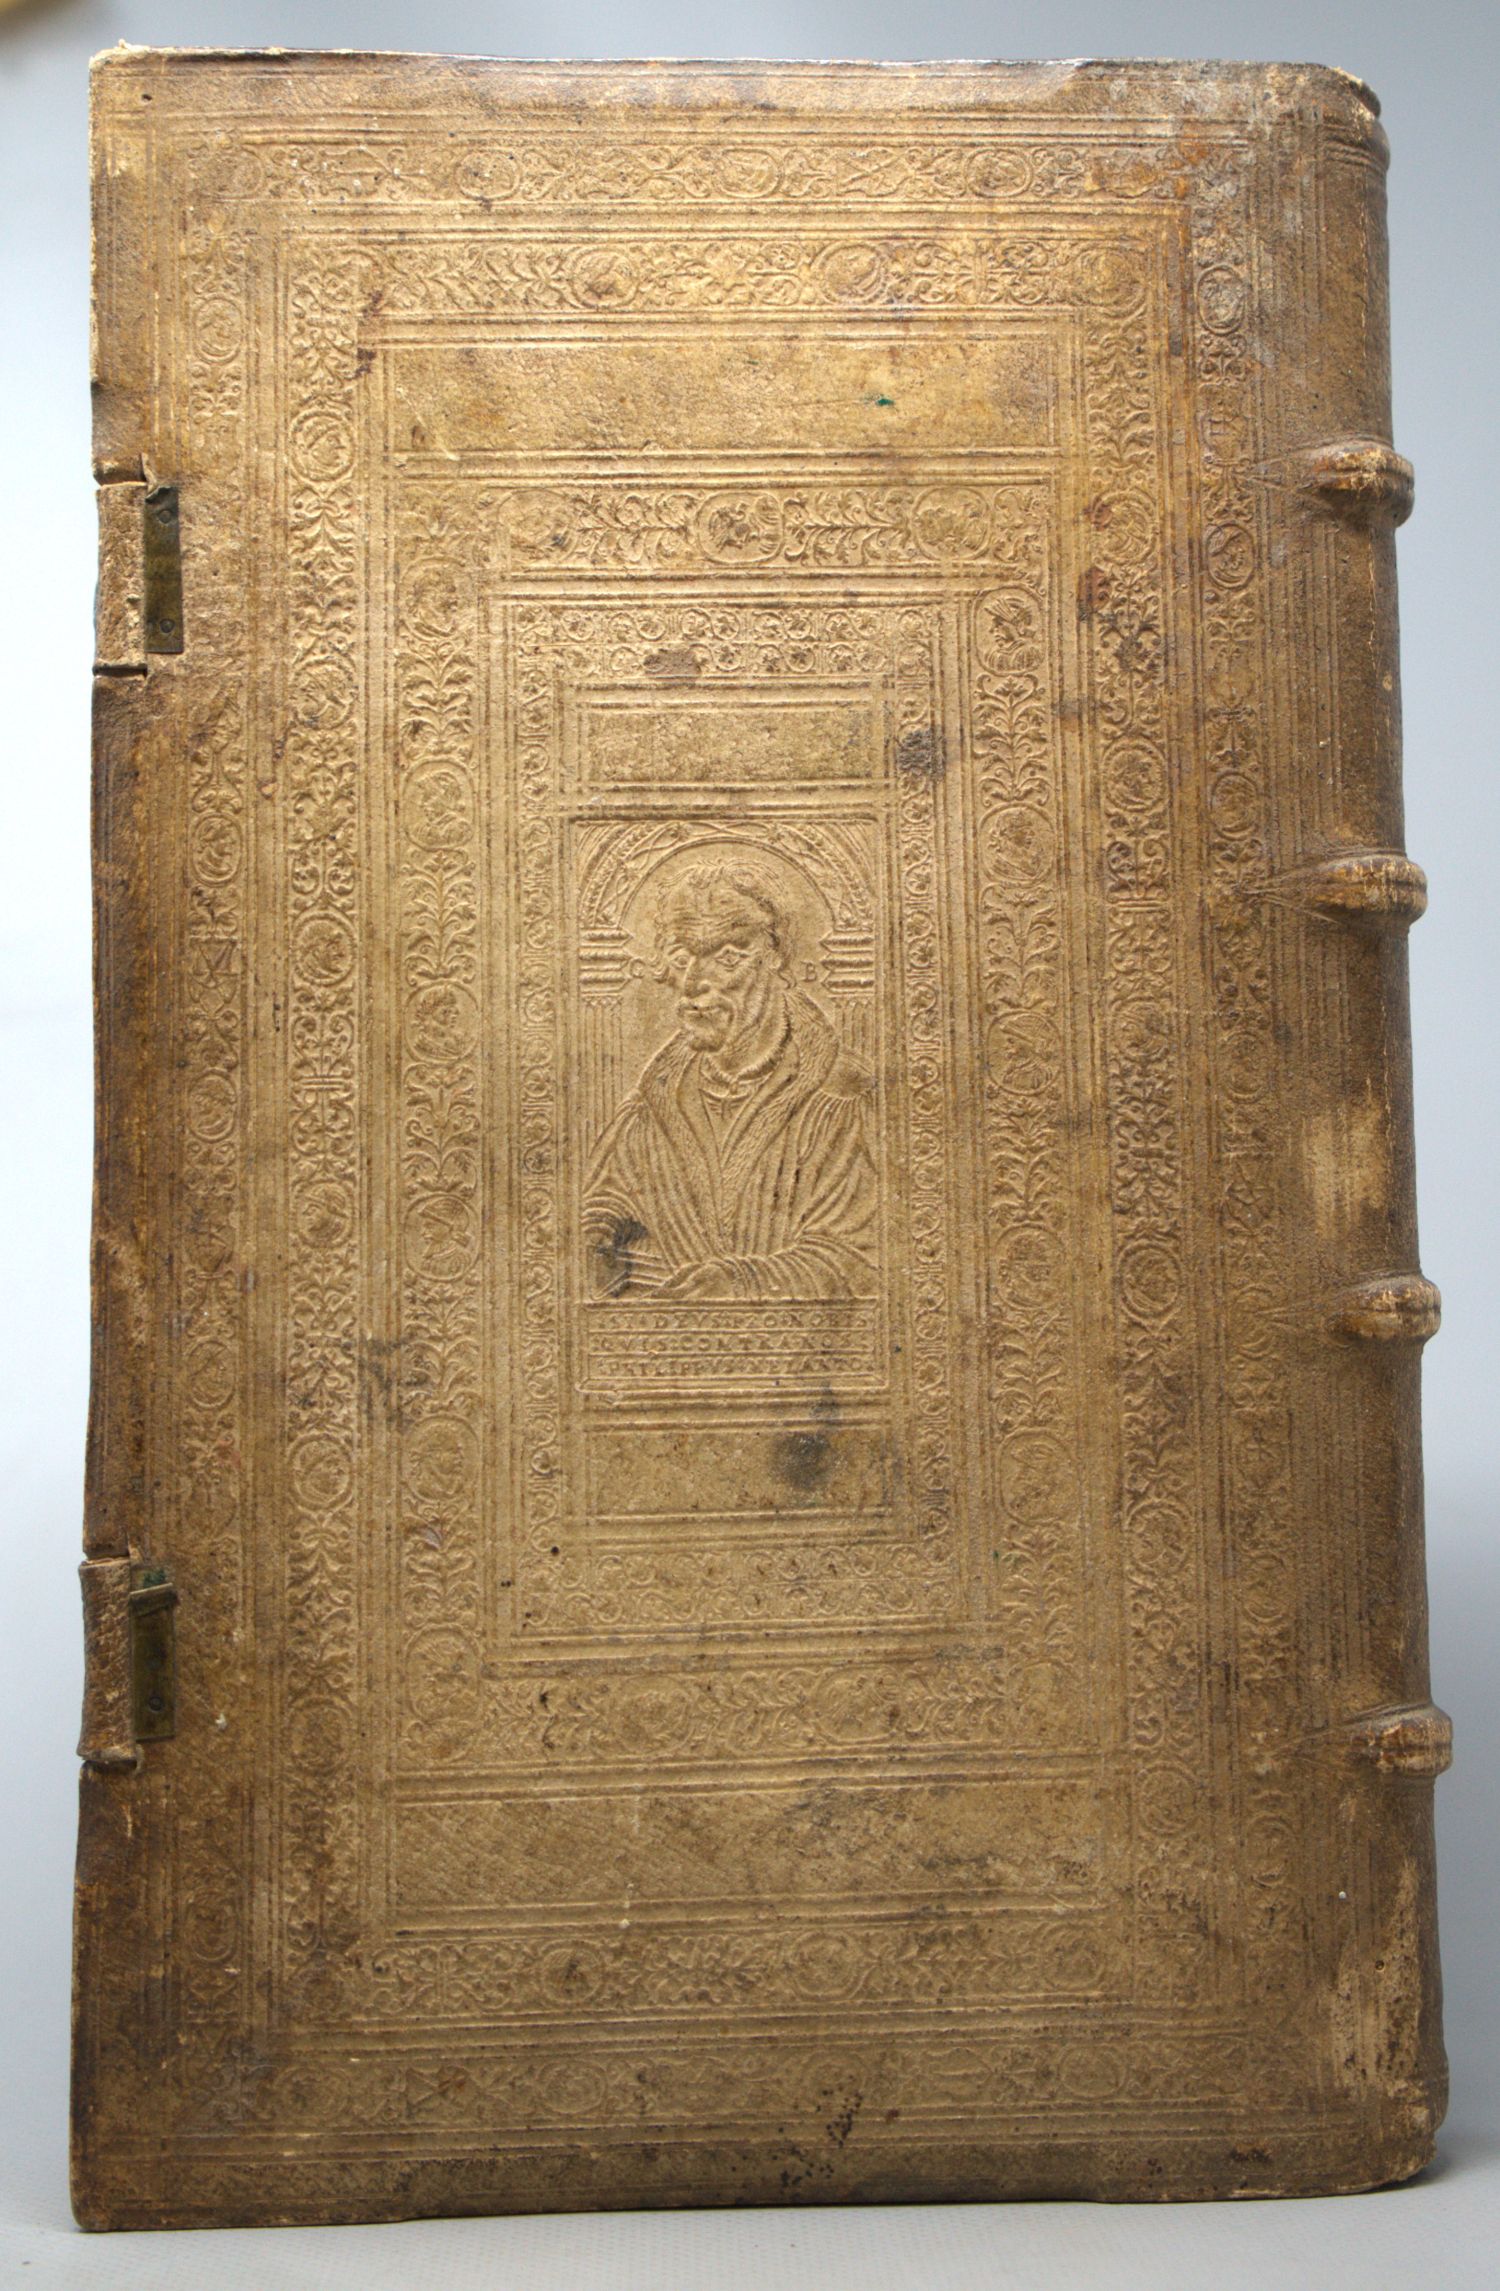 C B
SI·DEVS·PRO·NOBIS
QVIS·CONTRA·NOS
PHILIPPVS·MELANTO